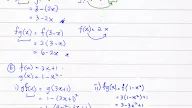 = 3 - (2x)
= 3 - 2x
fg(x) = f(3-x) f(x) = 2x
= 2(3-x)
= 6 - 2x
b) f(x) = 3x+1
g(x) = 1 - x²
i) gf(x) = g(3x+1) ii) fg(x) = f(1-x²)
= 1 - (3x+1)² = 3(1-x²)+1
= 3 - 3x²+1